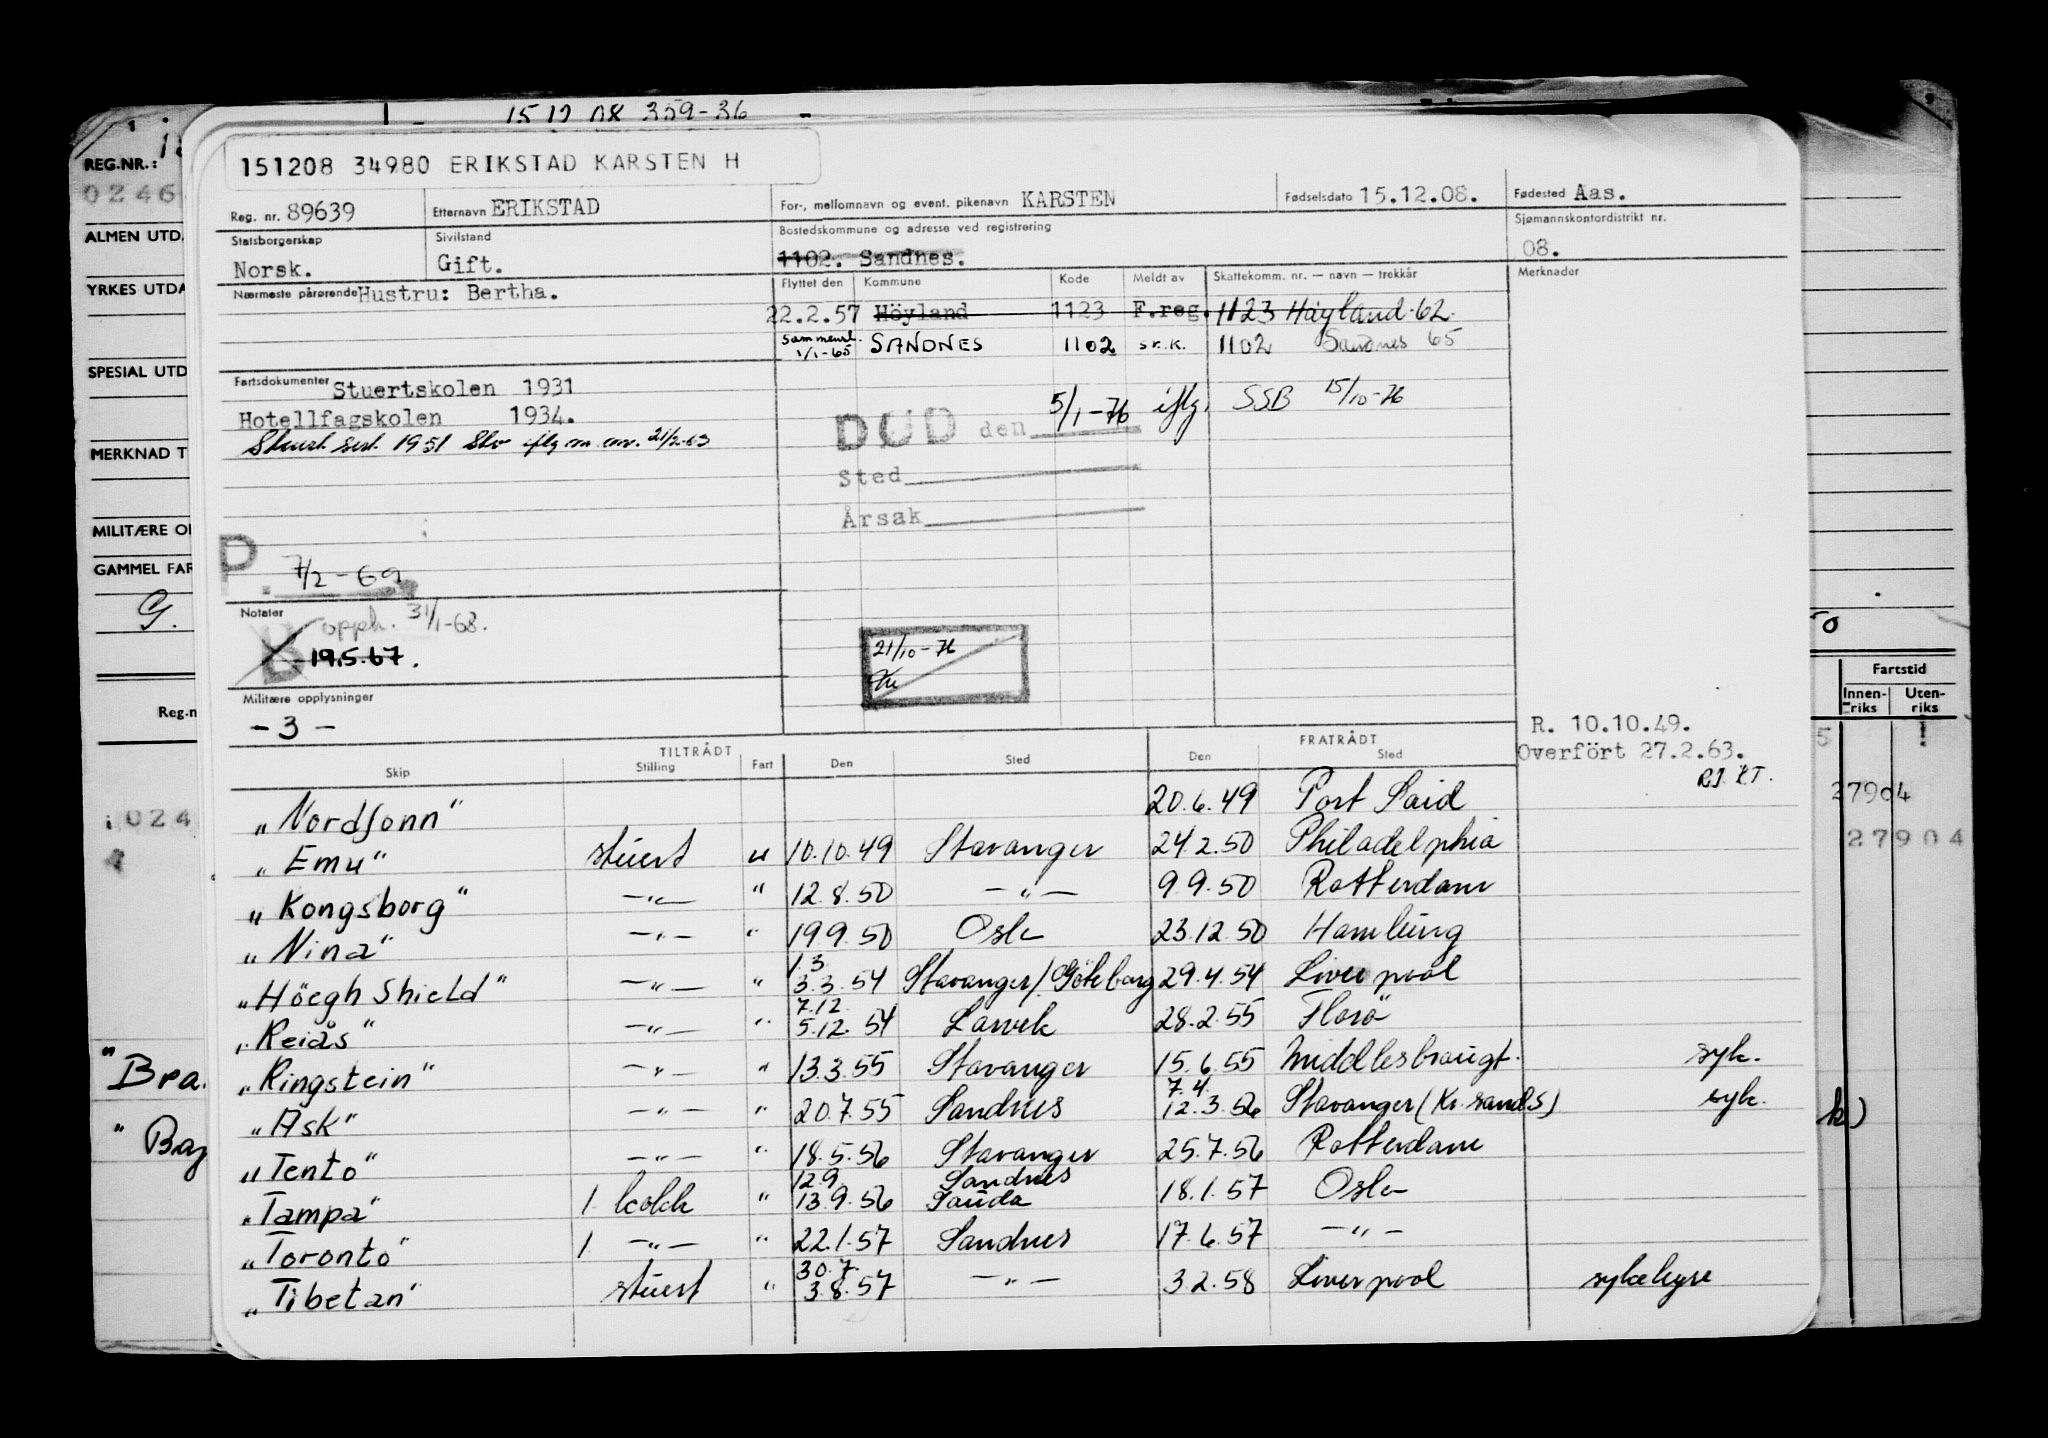 15 12 08 359-36
REG.NR.:
0246
ALMEN UTD
YRKES UTDA
SPECIAL UTD
MERKNAD T
MILITÆRE O
GAMMEL FAR
G.
Reg.n
024
"Bra.
" Bag
151208 34980 ERIKSTAD KARSTEN H
Reg. nr. 89639 Etternavn ERIKSTAD For-, mellomnavn og event. pikenavn KARSTEN Fødselsdato 15.12.08. Fødested Aas.
Statsborgerskap Sivilstand Bostedskommune og adresse ved registrering Sjømannskontordistrikt nr.
Norsk. Gift. 1102. Sandnes. 08.
Nærmeste pårørende Hustru: Bertha. Flyttet den Kommune Kode Meldt av Skattekomm. nr. — navn — trekkår Merknader
22.2.57 Höyland 1123 F.reg. 1123 Høyland 62
Sammensl. 1/1-65 SANDNES 1102 sk.k. 1102 Sandnes 65
Fartsdokumenter Stuertskolen 1931
Hotellfagskolen 1934.
Stuert sert. 1951 21/2-63
DÖD den 5/1-76 iflg. SSB 15/10-76
Sted
Årsak
P. 7/2-69
Notater opph. 31/1-68.
B 19.5.67.
21/10-76
Militære opplysninger
- 3 -
R. 10.10.49.
Overfört 27.2.63.
TILTRÅDT FRATRÅDT
Skip Stilling Fart Den Sted Den Sted
"Nordfonn" 20.6.49 Port Said
"Emu" stuert u 10.10.49 Stavanger 24.2.50 Philadelphia
"Kongsborg" -"- " 12.8.50 -"- 9.9.50 Rotterdam
"Nina" -"- " 19.9.50 Oslo 23.12.50 Hamburg
"Höegh Shield" -"- " 1.3 3.3.54 Stavanger/Göteborg 29.4.54 Liverpool
"Reiås" -"- " 7.12. 5.12.54 Larvik 28.2.55 Florö
"Ringstein" -"- " 13.3.55 Stavanger 15.6.55 Middlesbrougt. syk.
"Ask" -"- " 20.7.55 Sandnes 7.4. 12.3.56 Stavanger (Kr.sand S) syk.
"Tento" -"- " 18.5.56 Stavanger 25.7.56 Rotterdam
"Tampa" 1 kokk " 12.9. 13.9.56 Sandnes Sauda 18.1.57 Oslo
"Toronto" 1 -"- " 22.1.57 Sandnes 17.6.57 -"-
"Tibetan" stuert " 30.7. 3.8.57 -"- 3.2.58 Liverpool
Fartstid
Innen-riks Uten-riks
27904
27904
k)